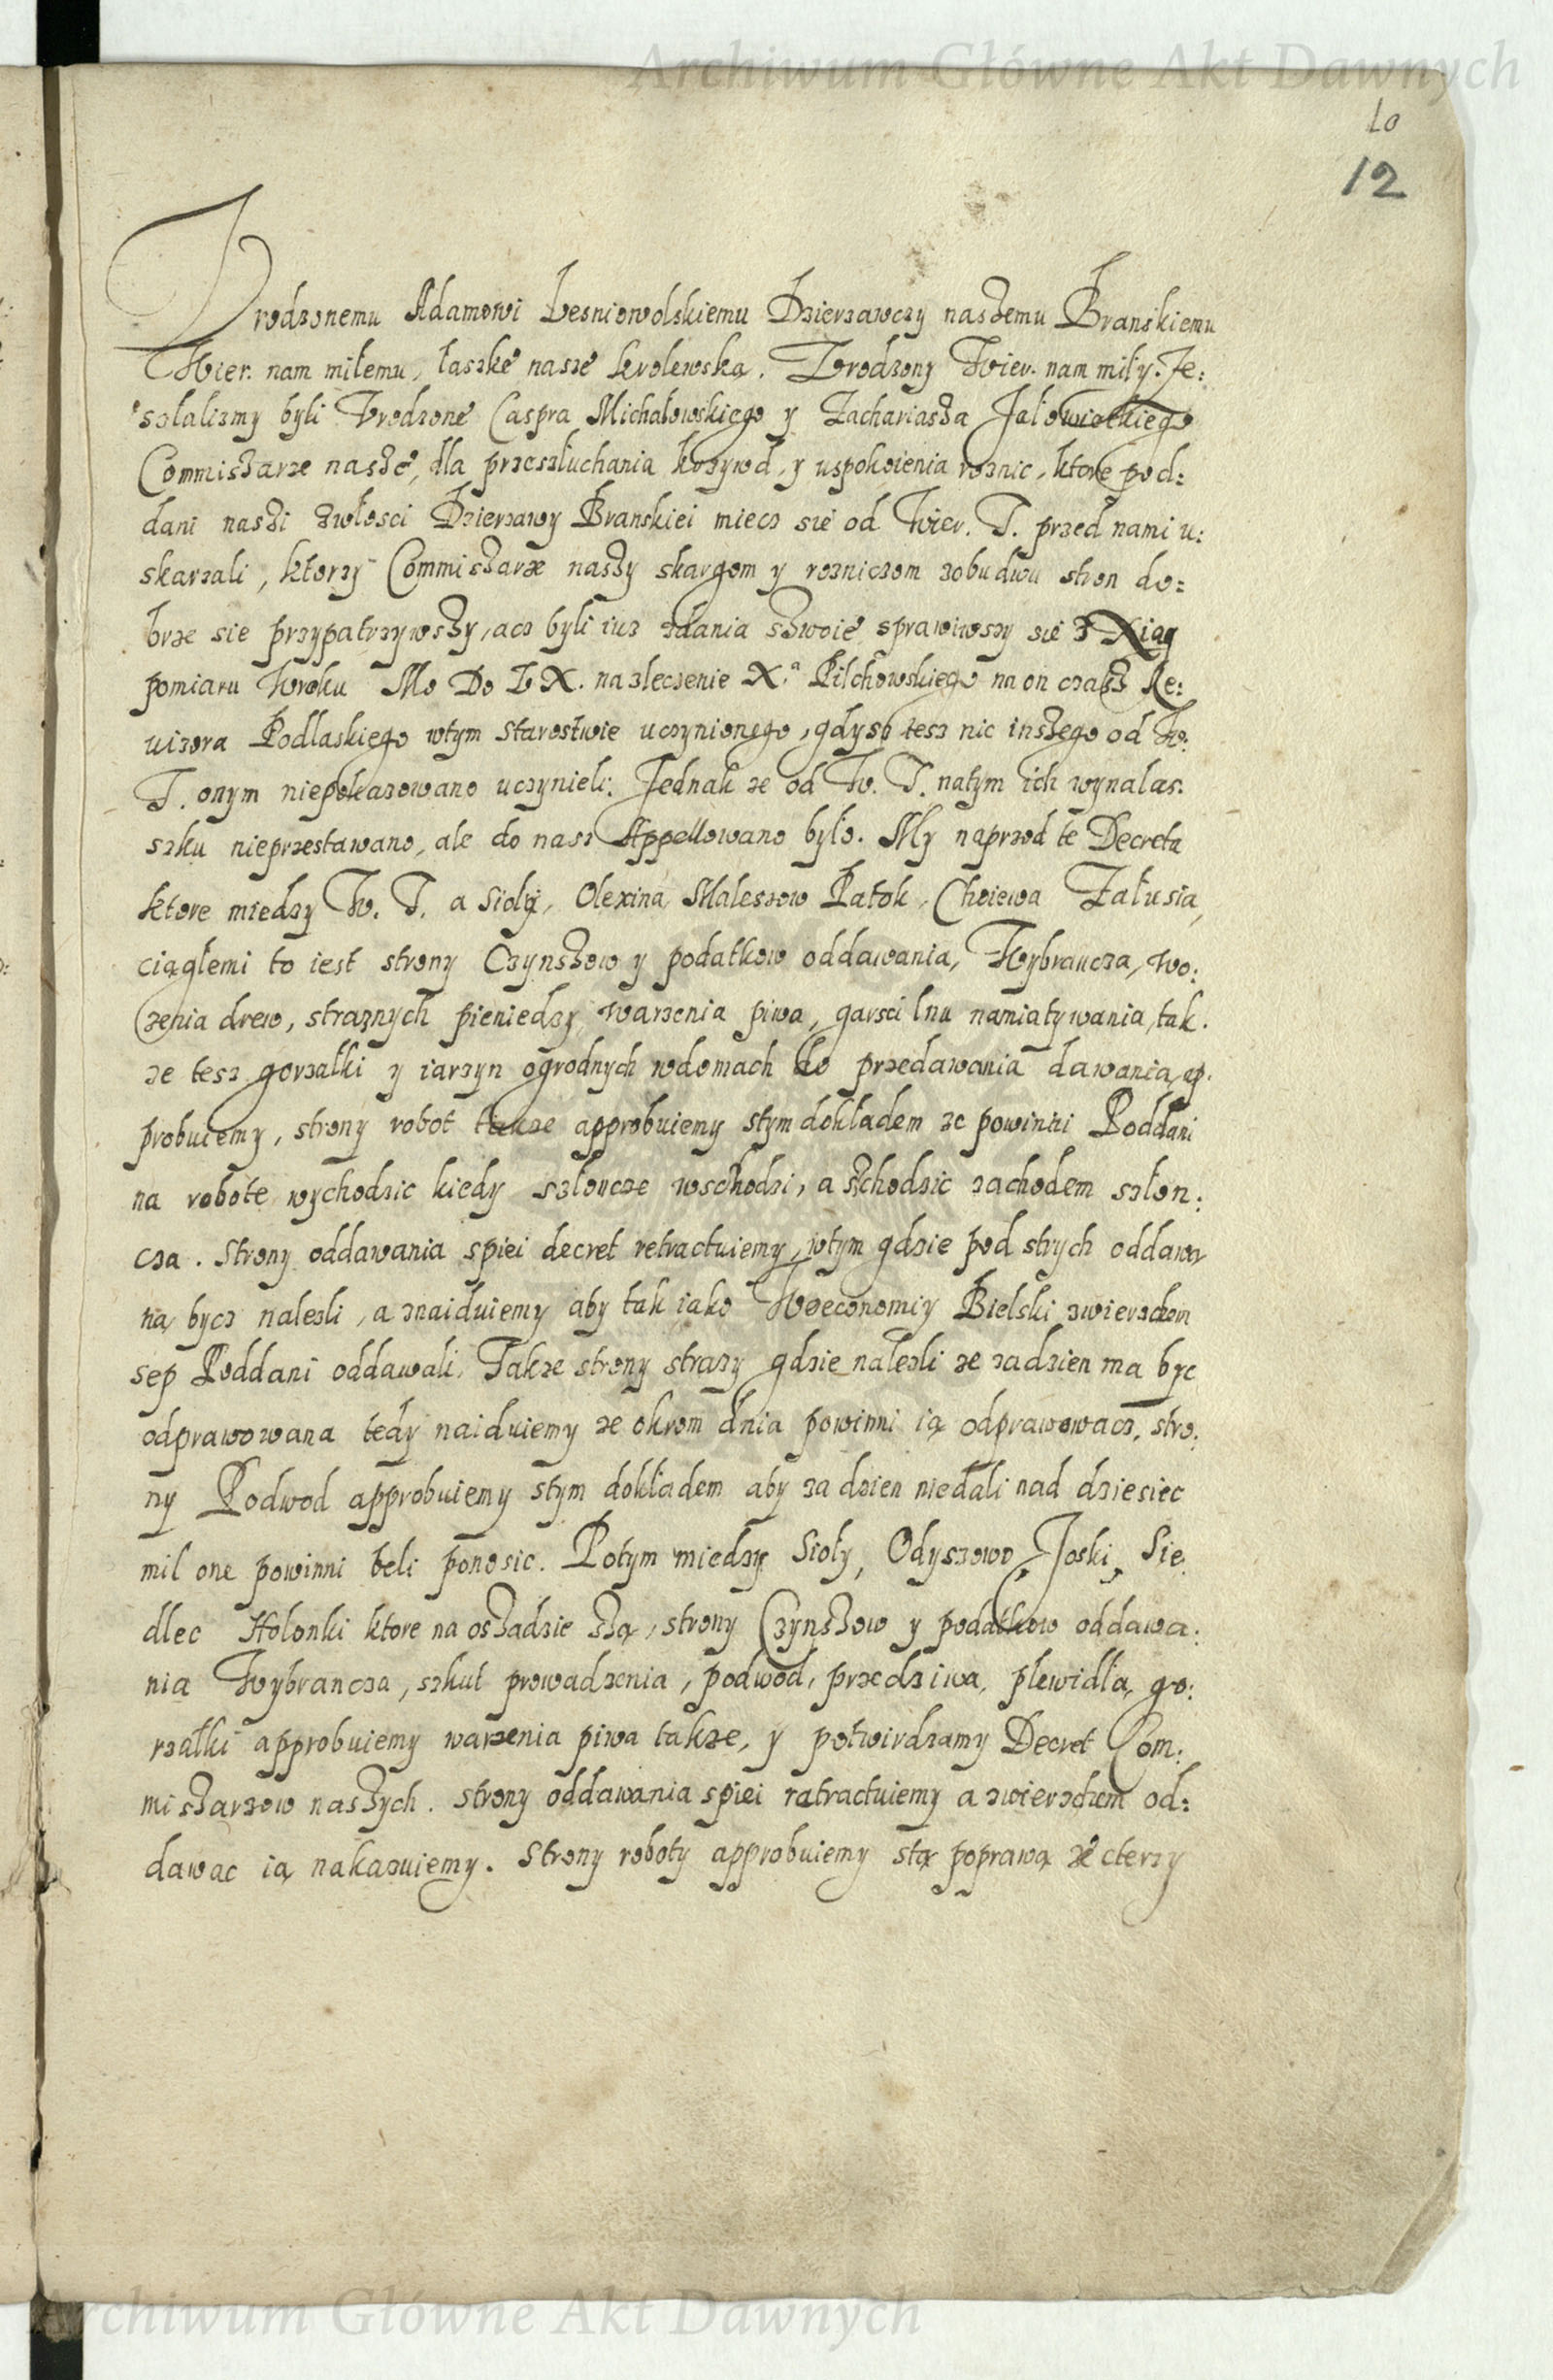 Archiwum Główne Akt Dawnych
10
12
Vrodzonemu Adamowi Lesniowolskiemu Dzierzawczy naszemu Branskiemu
Wier. nam miłemu, łaszkę nasze krolewską. Vrodzony Wier. nam miły. Ze:
szlalismy byli Vrodzone Caspra Michałowskiego y Zachariasza Jałowieckiego
Commiszarze nasze, dla przeszłuchania krzywd, y uspokoienia roznic, ktore pod:
dani naszi zwłosci Dzierzawy Branskiei miecz sie od Wier. T. przed nami u:
skarzali, ktorzy Commiszarze naszy skargom y rozniczom zobudwu stron do:
brze sie przypatrzywszy, acz byli iuz zdania szwoie sprawiwszy sie z Xiąg
pomiaru Wroku Mo Do L X. na zleczenie X.ª Pilchowskiego na on czasz Re:
uizora Podlaskiego wtym Starostwie uczynionego, gdysz tesz nic inszego od W.
T. onym niepokazowano uczynieli: Jednak ze od W. T. natym ich wynalas:
szku nieprzestawano, ale do nasz Appellowano było. My naprzod te Decreta
ktore miedzy W. T. a Sioły, Olexina Maleszow Patok, Choiewa Załusia,
ciągłemi to iest strony Czynszow y podatkow oddawania, Wybrancza, wo:
zenia drew, straznych pieniedzy warzenia piwa, garsci lnu namiatywania, tak.
ze tesz gorzałki y iarzyn ogrodnych wdomach do przedawania dawania, ap.
probuiemy, strony robot takze approbuiemy stym dokładem ze powinni Poddani
na robote wychodzic kiedy szloncze wschodzi, a schodzic zachodem szlon:
cza. Strony oddawania spiei decret retractuiemy, wtym gdzie pod strych oddawa
na bycz nalezli, a znaiduiemy aby tak iako Woeconomiy Bielski zwierzchem
sep Poddani oddawali. Takze strony strazy gdzie nalezli ze zadzien ma byc
odprawowana tedy naiduiemy ze okrom dnia powinni ią odprawowacz, stro:
ny Podwod approbuiemy stym dokładem aby za dzien niedali nad dziesiec
mil one powinni beli ponosic. Potym miedzy Sioły, Odyszowo, Joski, Sie:
dlec Holonki ktore na oszadzie szą, strony Czynszow y podatkow oddawa:
nia Wybrancza, szkut prowadzenia, podwod, przedziwa, plewidla, go:
rzałki approbuiemy warzenia piwa takze, y potwirdzamy Decret Com:
miszarzow naszych. Strony oddawania spiei ratractuiemy a zwierzchem od:
dawac ią nakazuiemy. Strony roboty approbuiemy stą poprawą ze cterzy
Archiwum Główne Akt Dawnych